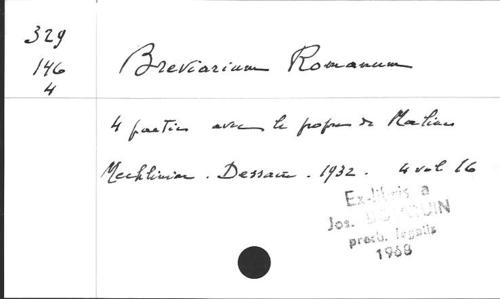 329
146
4
Breviarium Romanum
4 parties avec le propre de Malines
Mechliniae. Dessain. 1932. 4 vol 16
Ex-libris a
Jos.
presb. legatis
1968